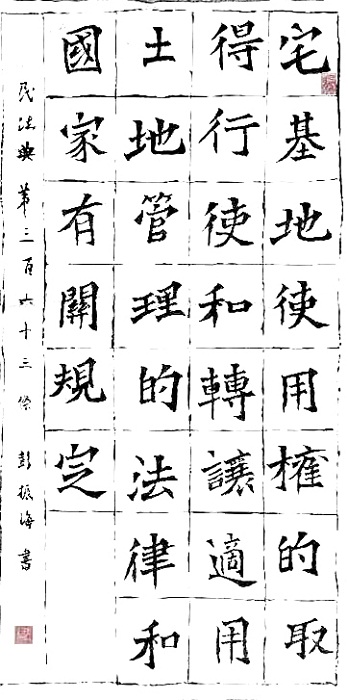 宅基地使用權的取
得行使和轉讓適用
土地管理的法律和
國家有關規定
民法典第三百六十三條 彭振海書